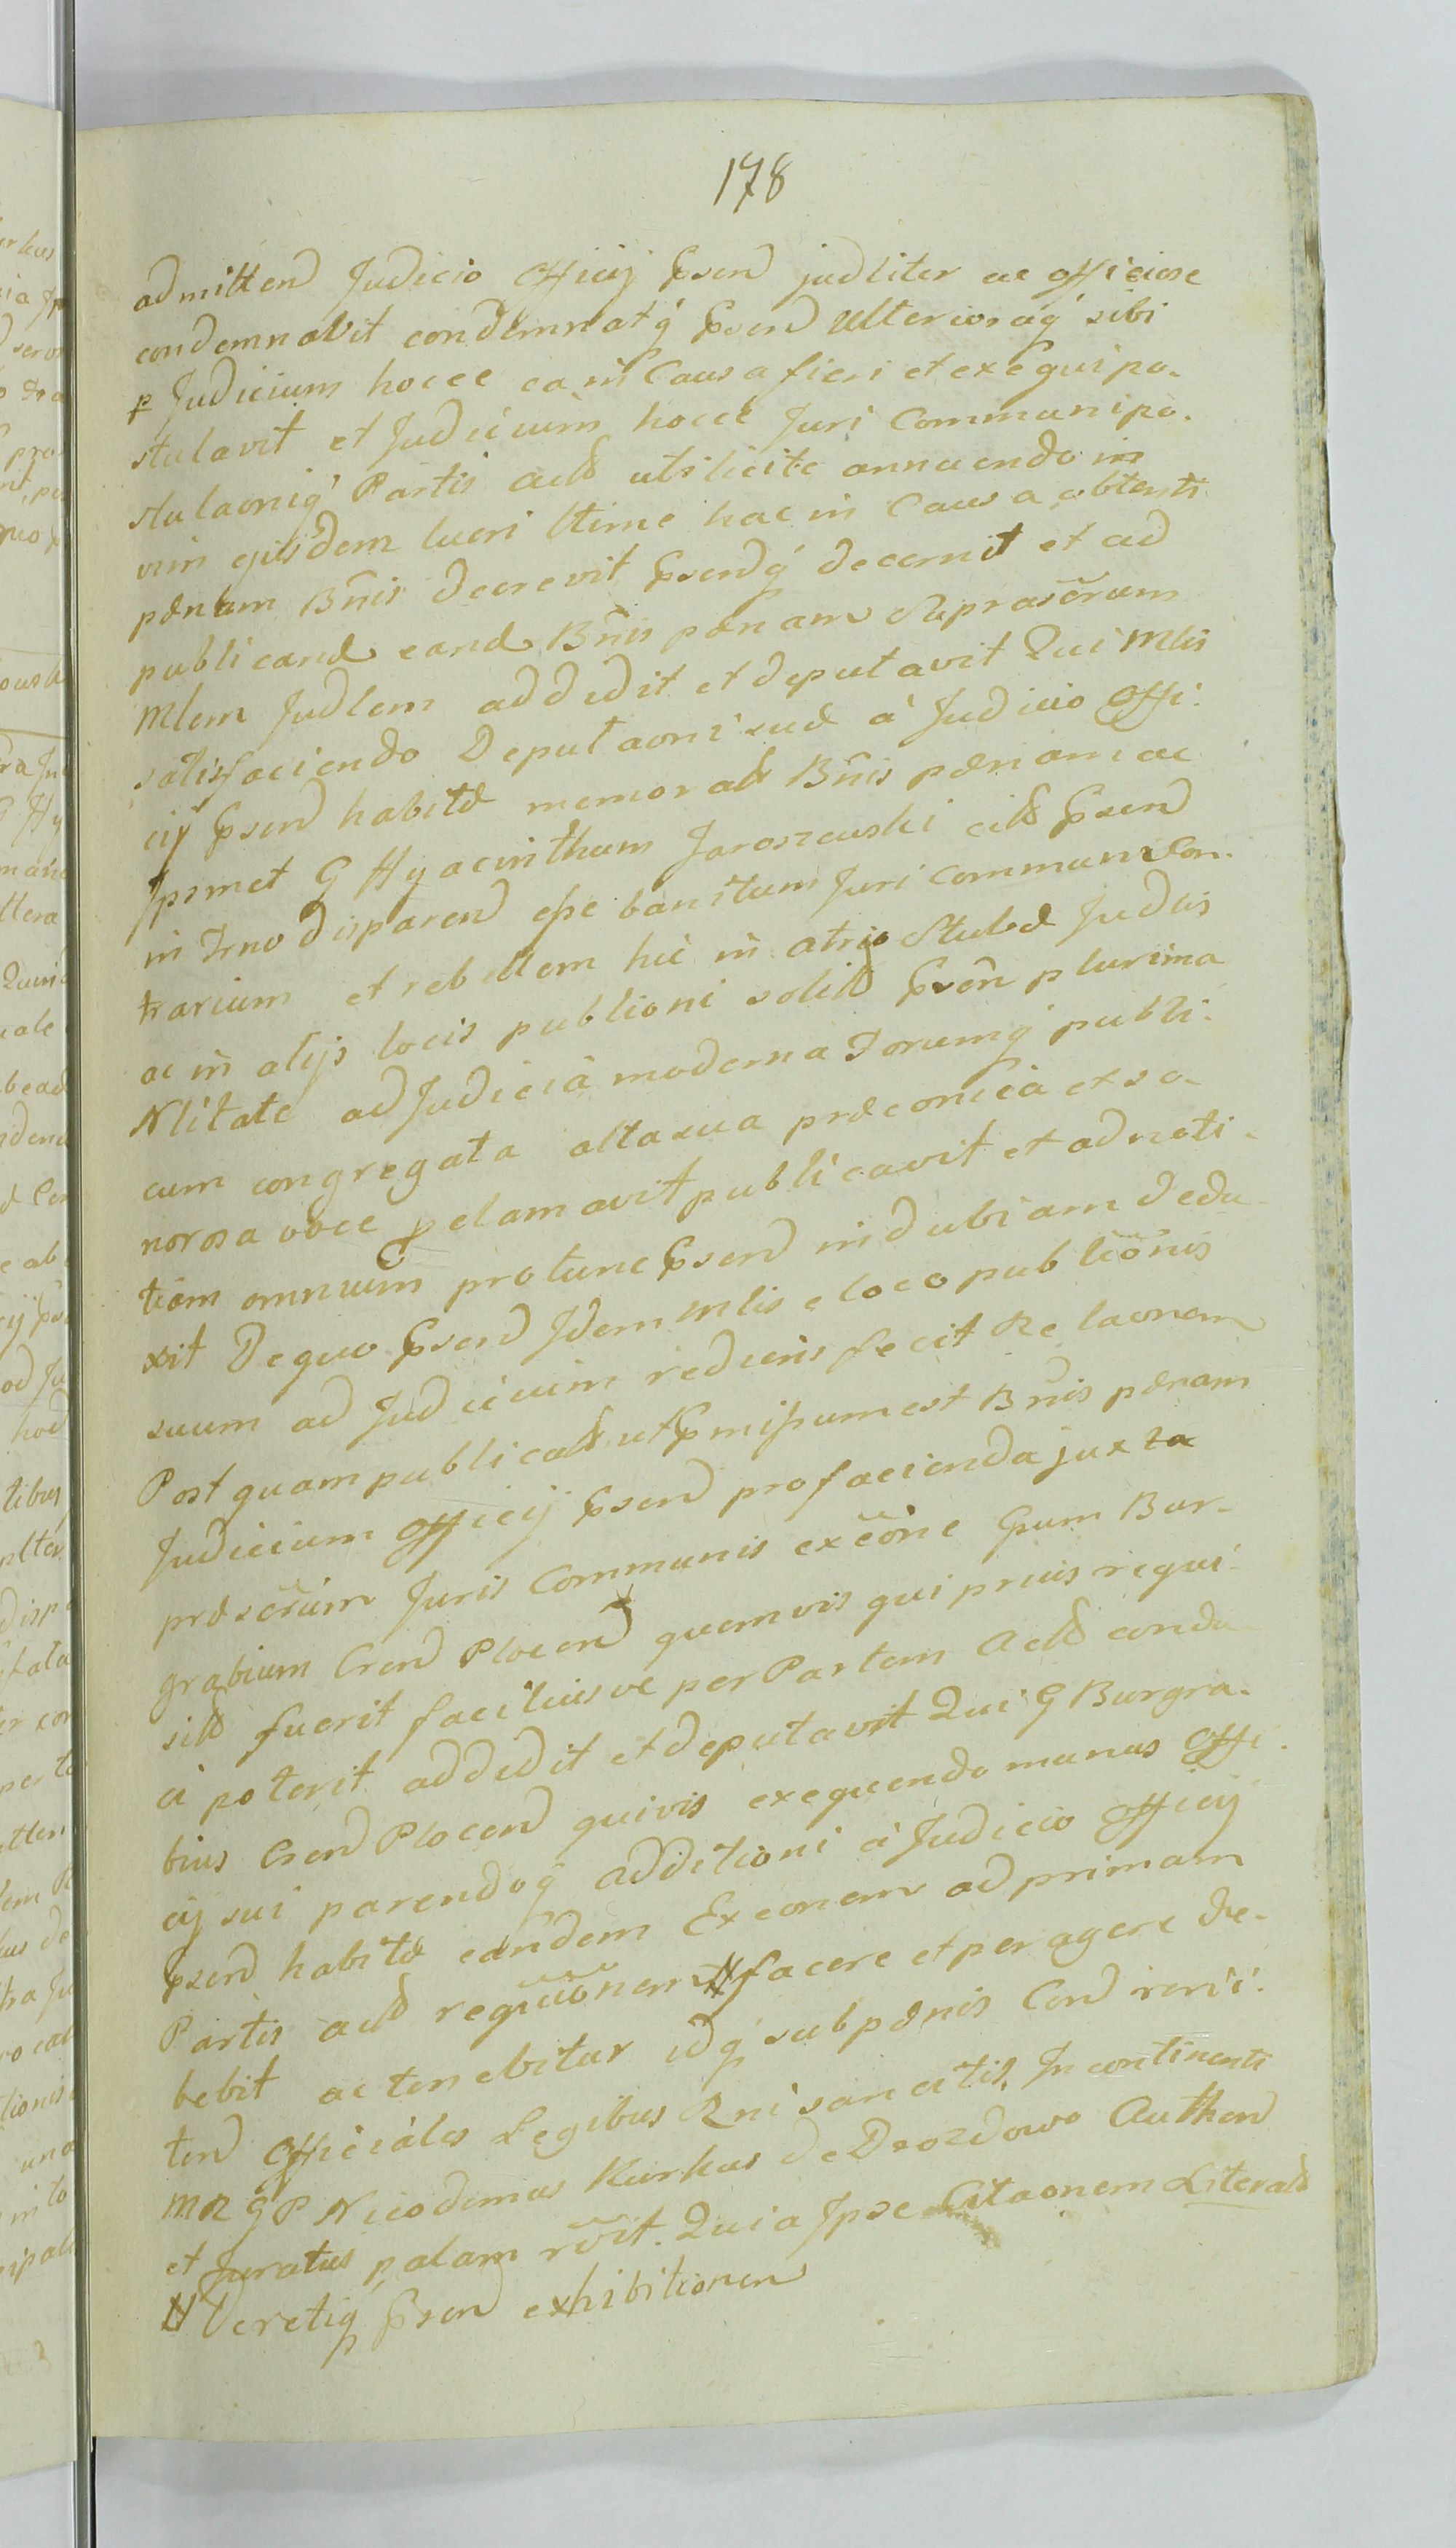 178
admittend Judicio Officij Psend judliter ac officiose
condemnavit condemnatq́ Psend Ulterioraq́ sibi
p Judicium hocce ea in Causa fieri et exequi po-
stulavit et Judicium hocce Juri Communi po-
stulaoniq́ Partis acts uti licite annuendo in
vim ejusdem lucri ltime hac in Causa obtenti
pænam Bñis decrevit Psendq́ decernit et ad
publicand eand Bñis pænam Suprascr̃um
Mlem Judlem addidit et deputavit Qui Mlis
satisfaciendo Deputaoni suæ à Judicio Offi-
cij Psend habitæ memorats Bñis pænam ac
Ipsmet G Hyacinthum Jaroszewski cits Psend
in Trno disparend eſse banitum Juri communi Con-
trarium et rebellem hic in atrio Stubæ Judlis
ac in alijs locis publioni solits Pseñ plurima
Nlitate ad Judicia moderna Forumq́ publi-
cum congregata alta sua præconica et so-
norosa voce pclamavit publicavit et ad noti-
tiam omnium protunc Psend indubiam dedu-
xit De quo Psend Idem Mlis e loco publiõnis
suum ad Judicium rediens fecit Relaonem
Post quam publicats ut Pmiſsum est Bñis pænam
Judicium Officij Psend pro facienda juxta
præscr̃um Juris Communis exc̃õne Gsum Bur-
grabium Crend Plocend quemvis qui prius requi-
sits fuerit faciliusve per Partem Acts condu-
ci poterit addidit et deputavit Qui G Burgra-
bius Crend Plocend quivis exequendo munus Offi-
cij sui parendoq́ additioni à Judicio Officij
Psend habitæ eandem Exconem ad primam
Partis acts requiõnem # facere et peragere de-
bebit ac tenebitur idq́ sub pænis Cond reni-
tend Officiales Legibus Rni sancitis. In continenti
MR G P Nicodemus Kurkus de Drozdowo Authend
et Juratus palam rc̃vit. Quia Ipse Citaonem Literals
# Decretiq Psend exhibitionem